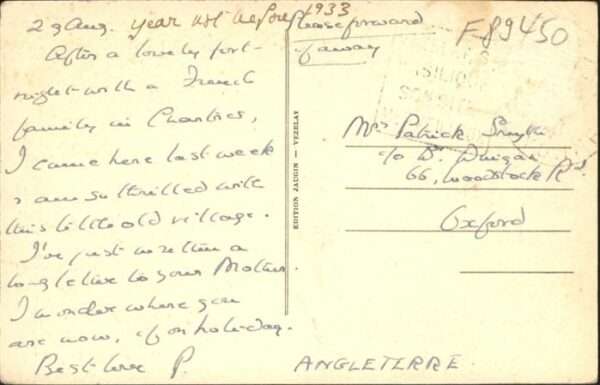 29 Aug. year not before 1933
After a lovely fort-
night with a French
family in Chartres,
I came here last week
& am so thrilled with
this little old village.
I've just written a
long letter to your Mother.
I wonder where you
are now, if on holiday.
Best love P.
EDITION JAUGIN — VEZELAY
Please forward
if away
F89450
Mrs Patrick Smyth
c/o Dr. Duigan
66, Woodstock Rd
Oxford
ANGLETERRE